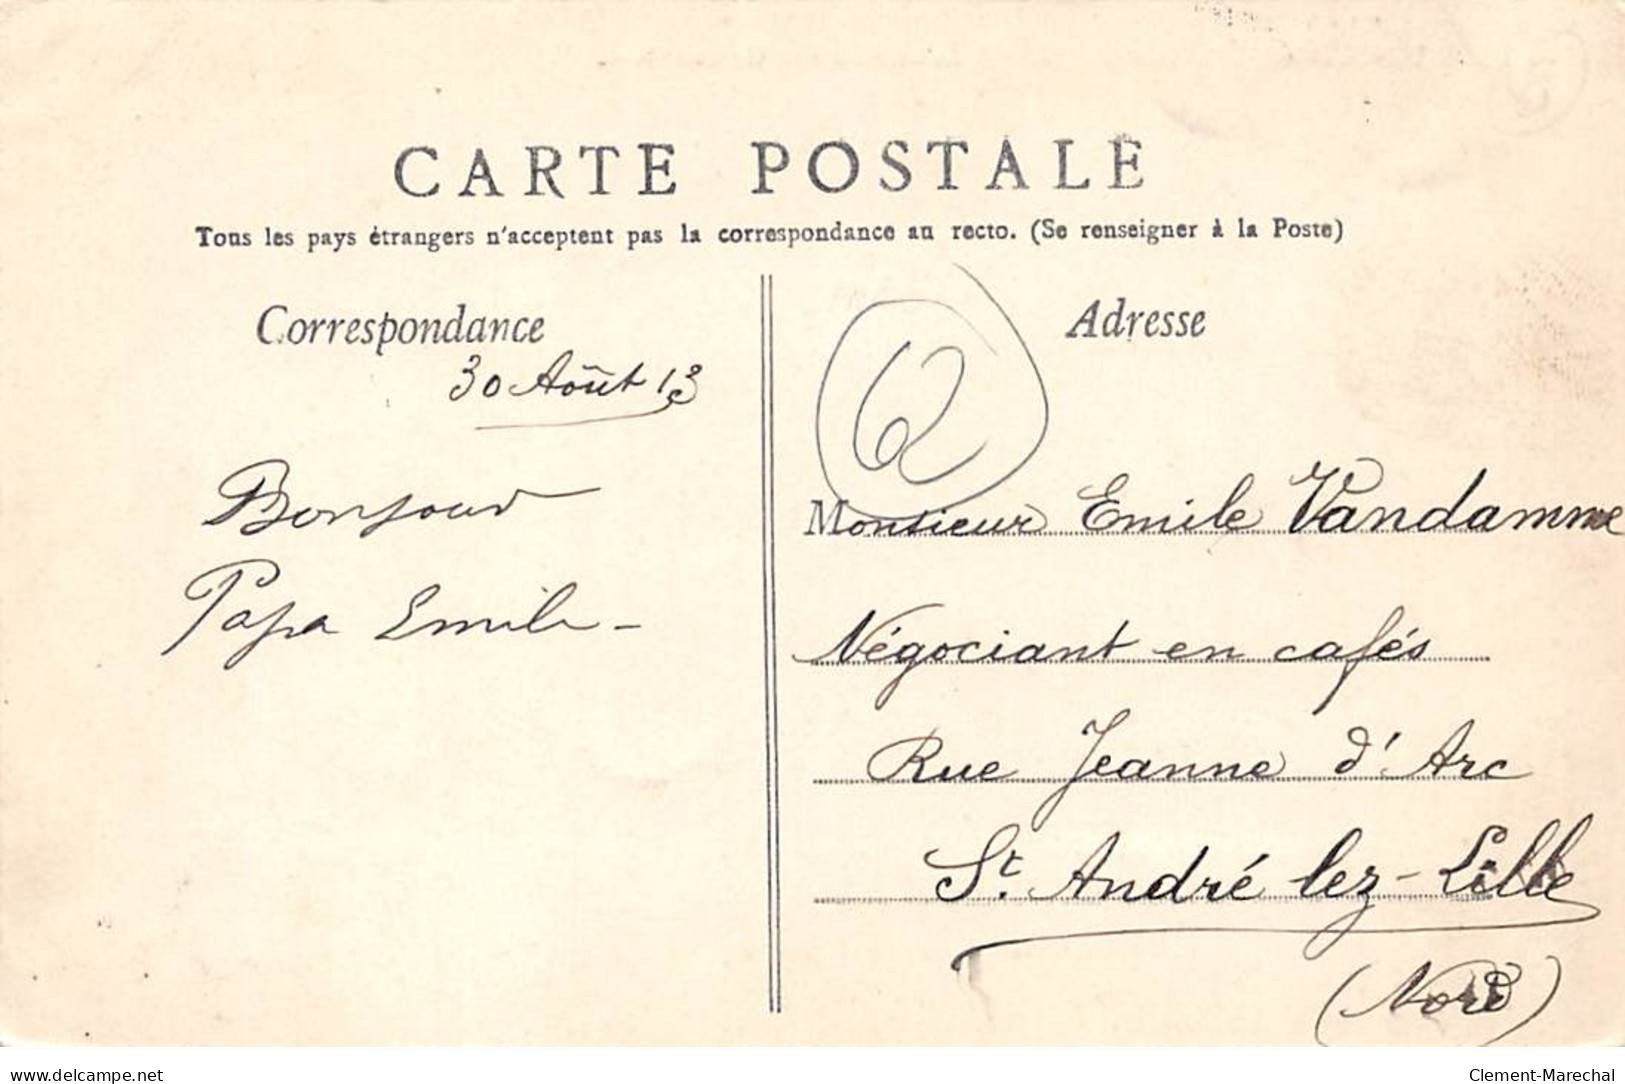 CARTE POSTALE
Tous les pays étrangers n'acceptent pas la correspondance au recto. (Se renseigner à la Poste)
Correspondance
30 Août 13
Bonjour
Papa Emile -
Adresse
62
Monsieur Emile Vandamme
Négociant en cafés
Rue Jeanne d'Arc
St. André lez-Lille
(Nord)
www.delcampe.net
Clement-Marechal